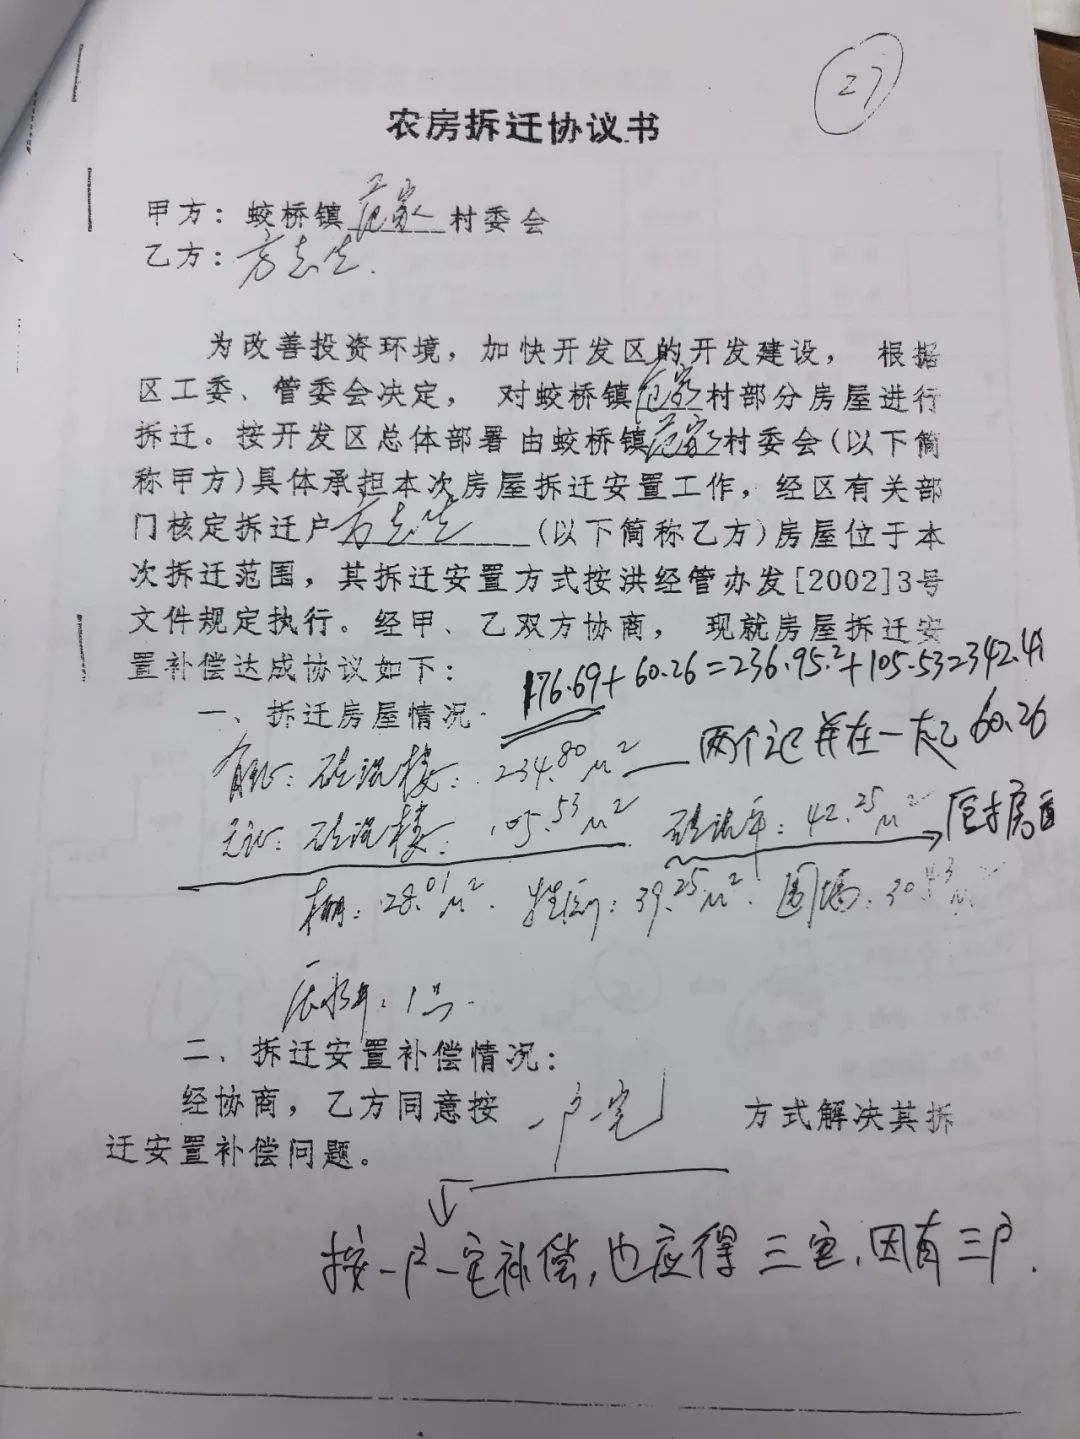 27
农房拆迁协议书
甲方：蛟桥镇范家村委会
乙方：方志生.
为改善投资环境，加快开发区的开发建设，根据
区工委、管委会决定，对蛟桥镇范家村部分房屋进行
拆迁。按开发区总体部署由蛟桥镇范家村委会(以下简
称甲方)具体承担本次房屋拆迁安置工作，经区有关部
门核定拆迁户方志生(以下简称乙方)房屋位于本
次拆迁范围，其拆迁安置方式按洪经管办发[2002]3号
文件规定执行。经甲、乙双方协商，现就房屋拆迁安
置补偿达成协议如下：
176.69+60.26=236.95.²+105.53=342.48
一、拆迁房屋情况.
有证：砖混楼：234.80M² 两个记并在一起 60.26
无证：砖混楼：105.53M² 砖混平：42.25M² 房
棚：28.01M². 39.25M². 围墙：30.43M
1号.
二、拆迁安置补偿情况：
经协商，乙方同意按一户一宅方式解决其拆
迁安置补偿问题。
按一户一宅补偿，也应得三宅，因有三户.